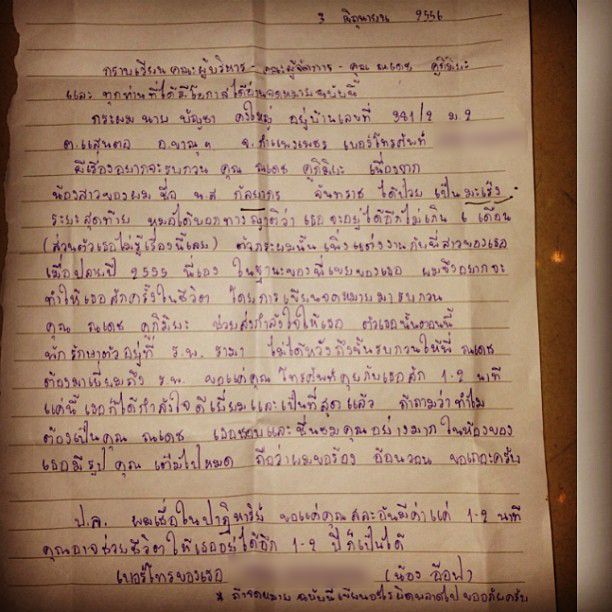 3 มิถุนายน 2556
กราบเรียนคณะผู้บริหาร - คณะผู้จัดการ - คุณ ณเดช คูกิมิยะ
และ ทุกท่านที่ได้มีโอกาสได้อ่านจดหมายฉบับนี้
กระผม นาย บัญชา อยู่บ้านเลขที่ 341/2 ม.2
ต.แสนตอ อ.ขาณุฯ จ.กำแพงเพชร เบอร์โทรศัพท์
มีเรื่องอยากจะรบกวน คุณ ณเดช คูกิมิยะ เนื่องจาก
น้องสาวของผม ชื่อ น.ส กัลยากร จันทราช ได้ป่วย เป็นมะเร็ง
ระยะสุดท้าย หมอได้บอกทางญาติว่า เธอจะอยู่ได้อีกไม่เกิน 6 เดือน
(ส่วนตัวเธอไม่รู้เรื่องนี้เลย) ตัวกระผมนั้น เพิ่งแต่งงานกับพี่สาวของเธอ
เมื่อปลายปี 2555 นี่เอง ในฐานะของพี่เขยของเธอ ผมจึงอยากจะ
ทำให้เธอสักครั้งในชีวิต โดยการเขียนจดหมายมารบกวน
คุณ ณเดช คูกิมิยะ ช่วยส่งกำลังใจให้เธอ ตัวเธอนั้นตอนนี้
พักรักษาตัวอยู่ที่ ร.พ. รามา ไม่ได้หวังถึงขั้นรบกวนให้พี่ ณเดช
ต้องมาเยี่ยมถึง ร.พ. ขอแค่คุณ โทรศัพท์คุยกับเธอสัก 1-2 นาที
แค่นี้ เธอก็ได้กำลังใจ ดีเยี่ยมและเป็นที่สุดแล้ว ถ้าถามว่าทำไม
ต้องเป็นคุณ ณเดช เธอชอบและชื่นชมคุณอย่างมาก ในห้องของ
เธอมีรูป คุณ เต็มไปหมด ถือว่าผมขอร้อง อ้อนวอน ขอเถอะครับ
ป.ล. ผมเชื่อในปาฏิหาริย์ ขอแค่คุณสละอันมีค่าแค่ 1-2 นาที
คุณอาจช่วยชีวิตให้เธออยู่ได้อีก 1-2 ปี ก็เป็นได้
เบอร์โทรของเธอ (น้อง อ้อฟ)
* ถ้าจดหมาย ฉบับนี้เขียนอะไรผิดพลาดไป ขออภัยครับ